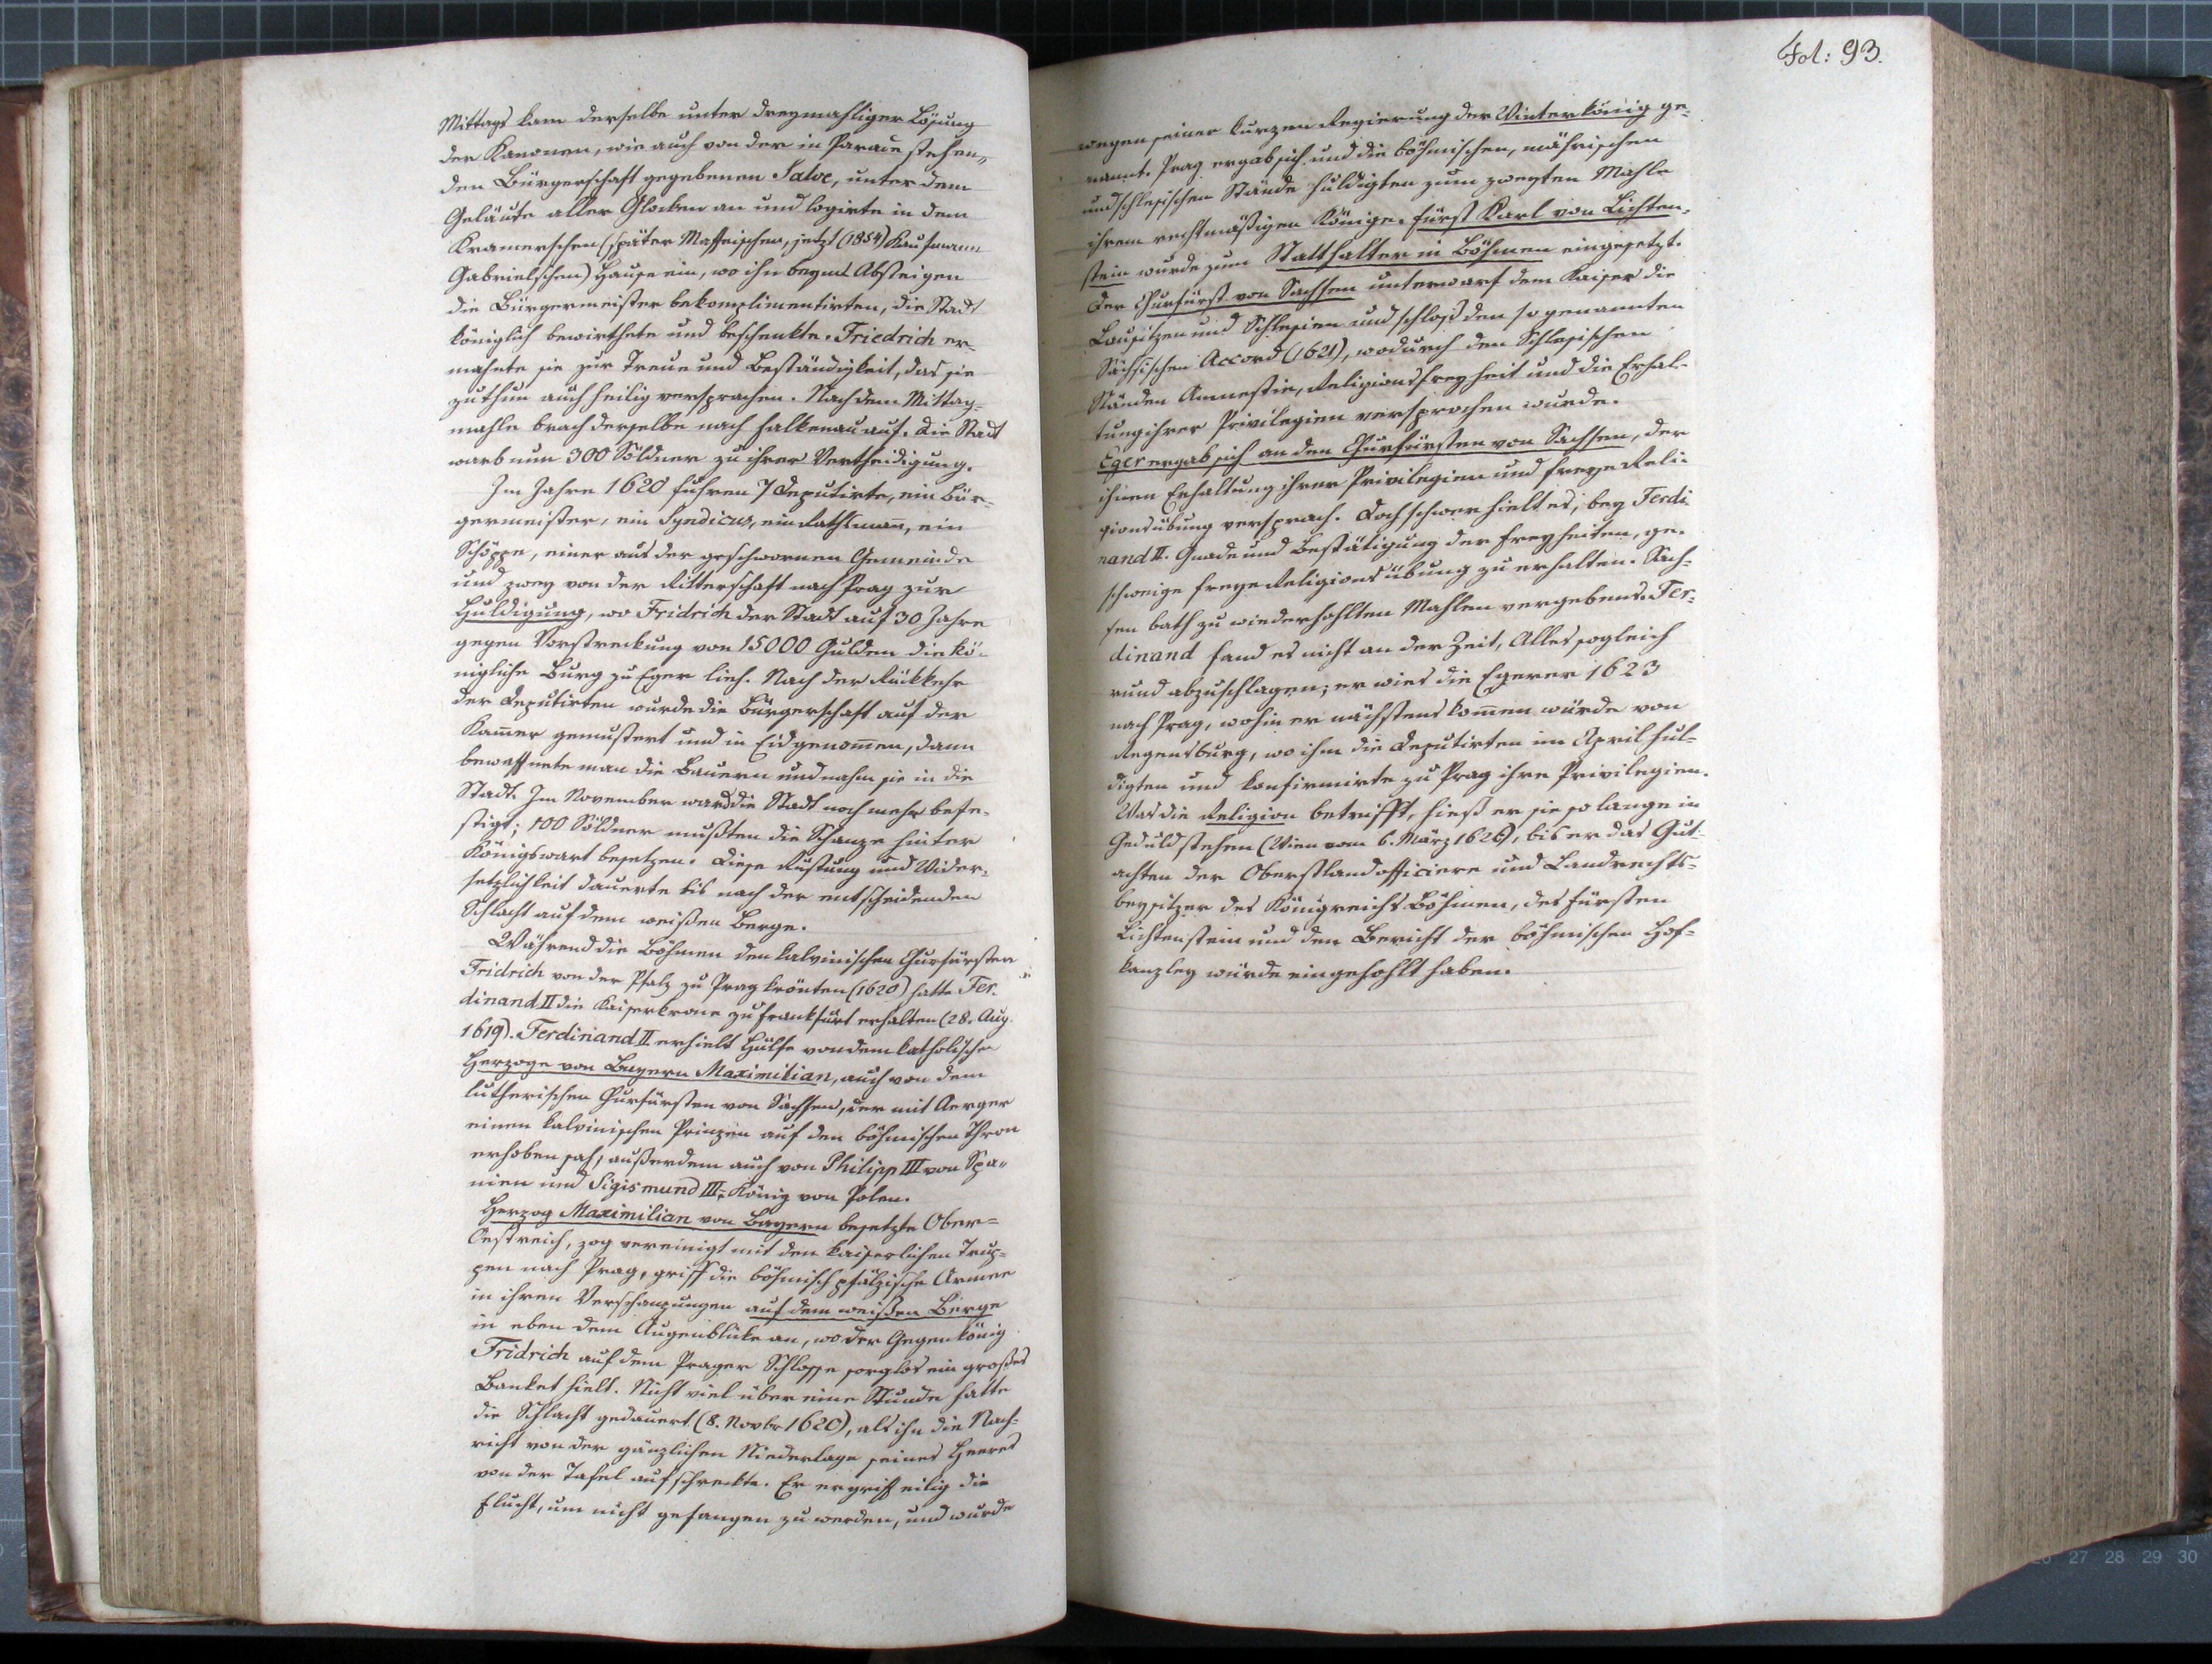 Mittags kam derselbe unter dreymahliger Lösung
der Kanonen, wie auch von der in Parade stehen„
den Bürgerschaft gegebenen Salve, unter dem
Geläute aller Glocken an und logirte in dem
Kramerschen (später Maffeischen, jetzt (1854) Kaufmann
Gabrielschen) Hause ein, wo ihn beyms Absteigen
die Bürgermeister bekomplimentirten, die Stadt
königlich bewirthete und beschenkte. Friedrich er-
mahnte sie zur Treue und Beständigkeit, das sie
zu thun auch heilig versprachen. Nach dem Mittag-
mahle brach derselbe nach Falkenau auf. Die Stadt
warb nun 300 Söldner zu ihrer Vertheidigung.
Im Jahre 1620 fuhren 7 Deputirte, ein Bür-
germeister, ein Syndicus, ein Rathsmañ, ein
Schöppe, einer aus der geschwornen Gemeinde
und zwey von der Ritterschaft nach Prag zur
Huldigung, wo Fridrich der Stadt auf 30 Jahre
gegen Vorstreckung von 15000 Gulden die kö-
nigliche Burg zu Eger lieh. Nach der Rückkehr
der Deputirten wurde die Bürgerschaft auf der
Kam̄er gemustert und in Eid genom̄en, dann
bewaffnete man die Bauern und nahm sie in die
Stadt. Im November ward die Stadt noch mehr befe-
stigt; 100 Söldner mußten die Schanze hinter
Königswart besetzen. Diese Rüstung und Wider-
setzlichkeit dauerte bis nach der entscheidenden
Schlacht auf dem weißen Berge.
Während die Böhmen den kalvinischen Churfürsten
Fridrich von der Pfalz zu Prag krönten (1620) hatte Fer-
dinand II die Kaiserkrone zu Frankfurt erhalten (28. Aug.
1619). Ferdinand II erhielt Hülfe von dem katholischen
Herzoge von Bayern Maximilian, auch von dem
lutherischen Churfürsten von Sachsen, der mit Aerger
einen kalvinischen Prinzen auf den böhmischen Thron
erhoben sah, außerdem auch von Philipp III von Spa„
nien und Sigismund III, König von Polen.
Herzog Maximilian von Bayern besetzte Ober=
Oestreich, zog vereinigt mit den kaiserlichen Trup-
pen nach Prag, griff die böhmisch pfälzische Armee
in ihren Verschanzungen auf dem weißen Berge
in eben dem Augenblicke an, wo der Gegenkönig
Fridrich auf dem Prager Schlosse sorglos ein großes
Banket hielt. Nicht viel über eine Stunde hatte
die Schlacht gedauert (8. Novbr 1620), als ihn die Nach-
richt von der gänzlichen Niederlage seines Heeres
von der Tafel aufschreckte. Er ergriff eilig die
Flucht, um nicht gefangen zu werden, und wurde
Fol: 93.
wegen seiner kurzen Regierung der Winterkönig ge-
nannt. Prag ergab sich und die böhmischen, mährischen
und schlesischen Stände huldigten zum zweyten Mahle
ihrem rechtmäßigen Könige. Fürst Karl von Lichten-
stein wurde zum Statthalter in Böhmen eingesetzt.
Der Churfürst von Sachsen unterwarf dem Kaiser die
Lausitzen und Schlesien und schloß den so genannten
Sächsischen Accord (1621), wodurch den Schlesischen
Ständen Amnestie, Religionsfreyheit und die Erhal-
tung ihrer Privilegien versprochen wurde.
Eger ergab sich an den Churfürsten von Sachsen, der
ihnen Erhaltung ihrer Privilegien und freye Reli-
gionsübung versprach. Doch schwer hielt es, bey Ferdi-
nand II. Gnade und Bestätigung der Freyheiten, ge-
schweige freye Religionsübung zu erhalten. Sach-
sen bath zu wiederhohlten Mahlen vergebens. Fer-
dinand fand es nicht an der Zeit, Alles sogleich
rund abzuschlagen; er wies die Egerer 1623
nach Prag, wohin er nächstens kom̄en würde von
Regensburg, wo ihm die Deputirten im April hul-
digten und konfirmirte zu Prag ihre Privilegien.
Was die Religion betrifft, hieß er sie so lange in
Geduld stehen (Wien vom 6. März 1626), bis er das Gut-
achten der Oberstlandofficiere und Landrechts-
beysitzer des Königreichs Böhmen, des Fürsten
Lichtenstein und den Bericht der böhmischen Hof-
kanzley würde eingehohlt haben.
27 28 29 30